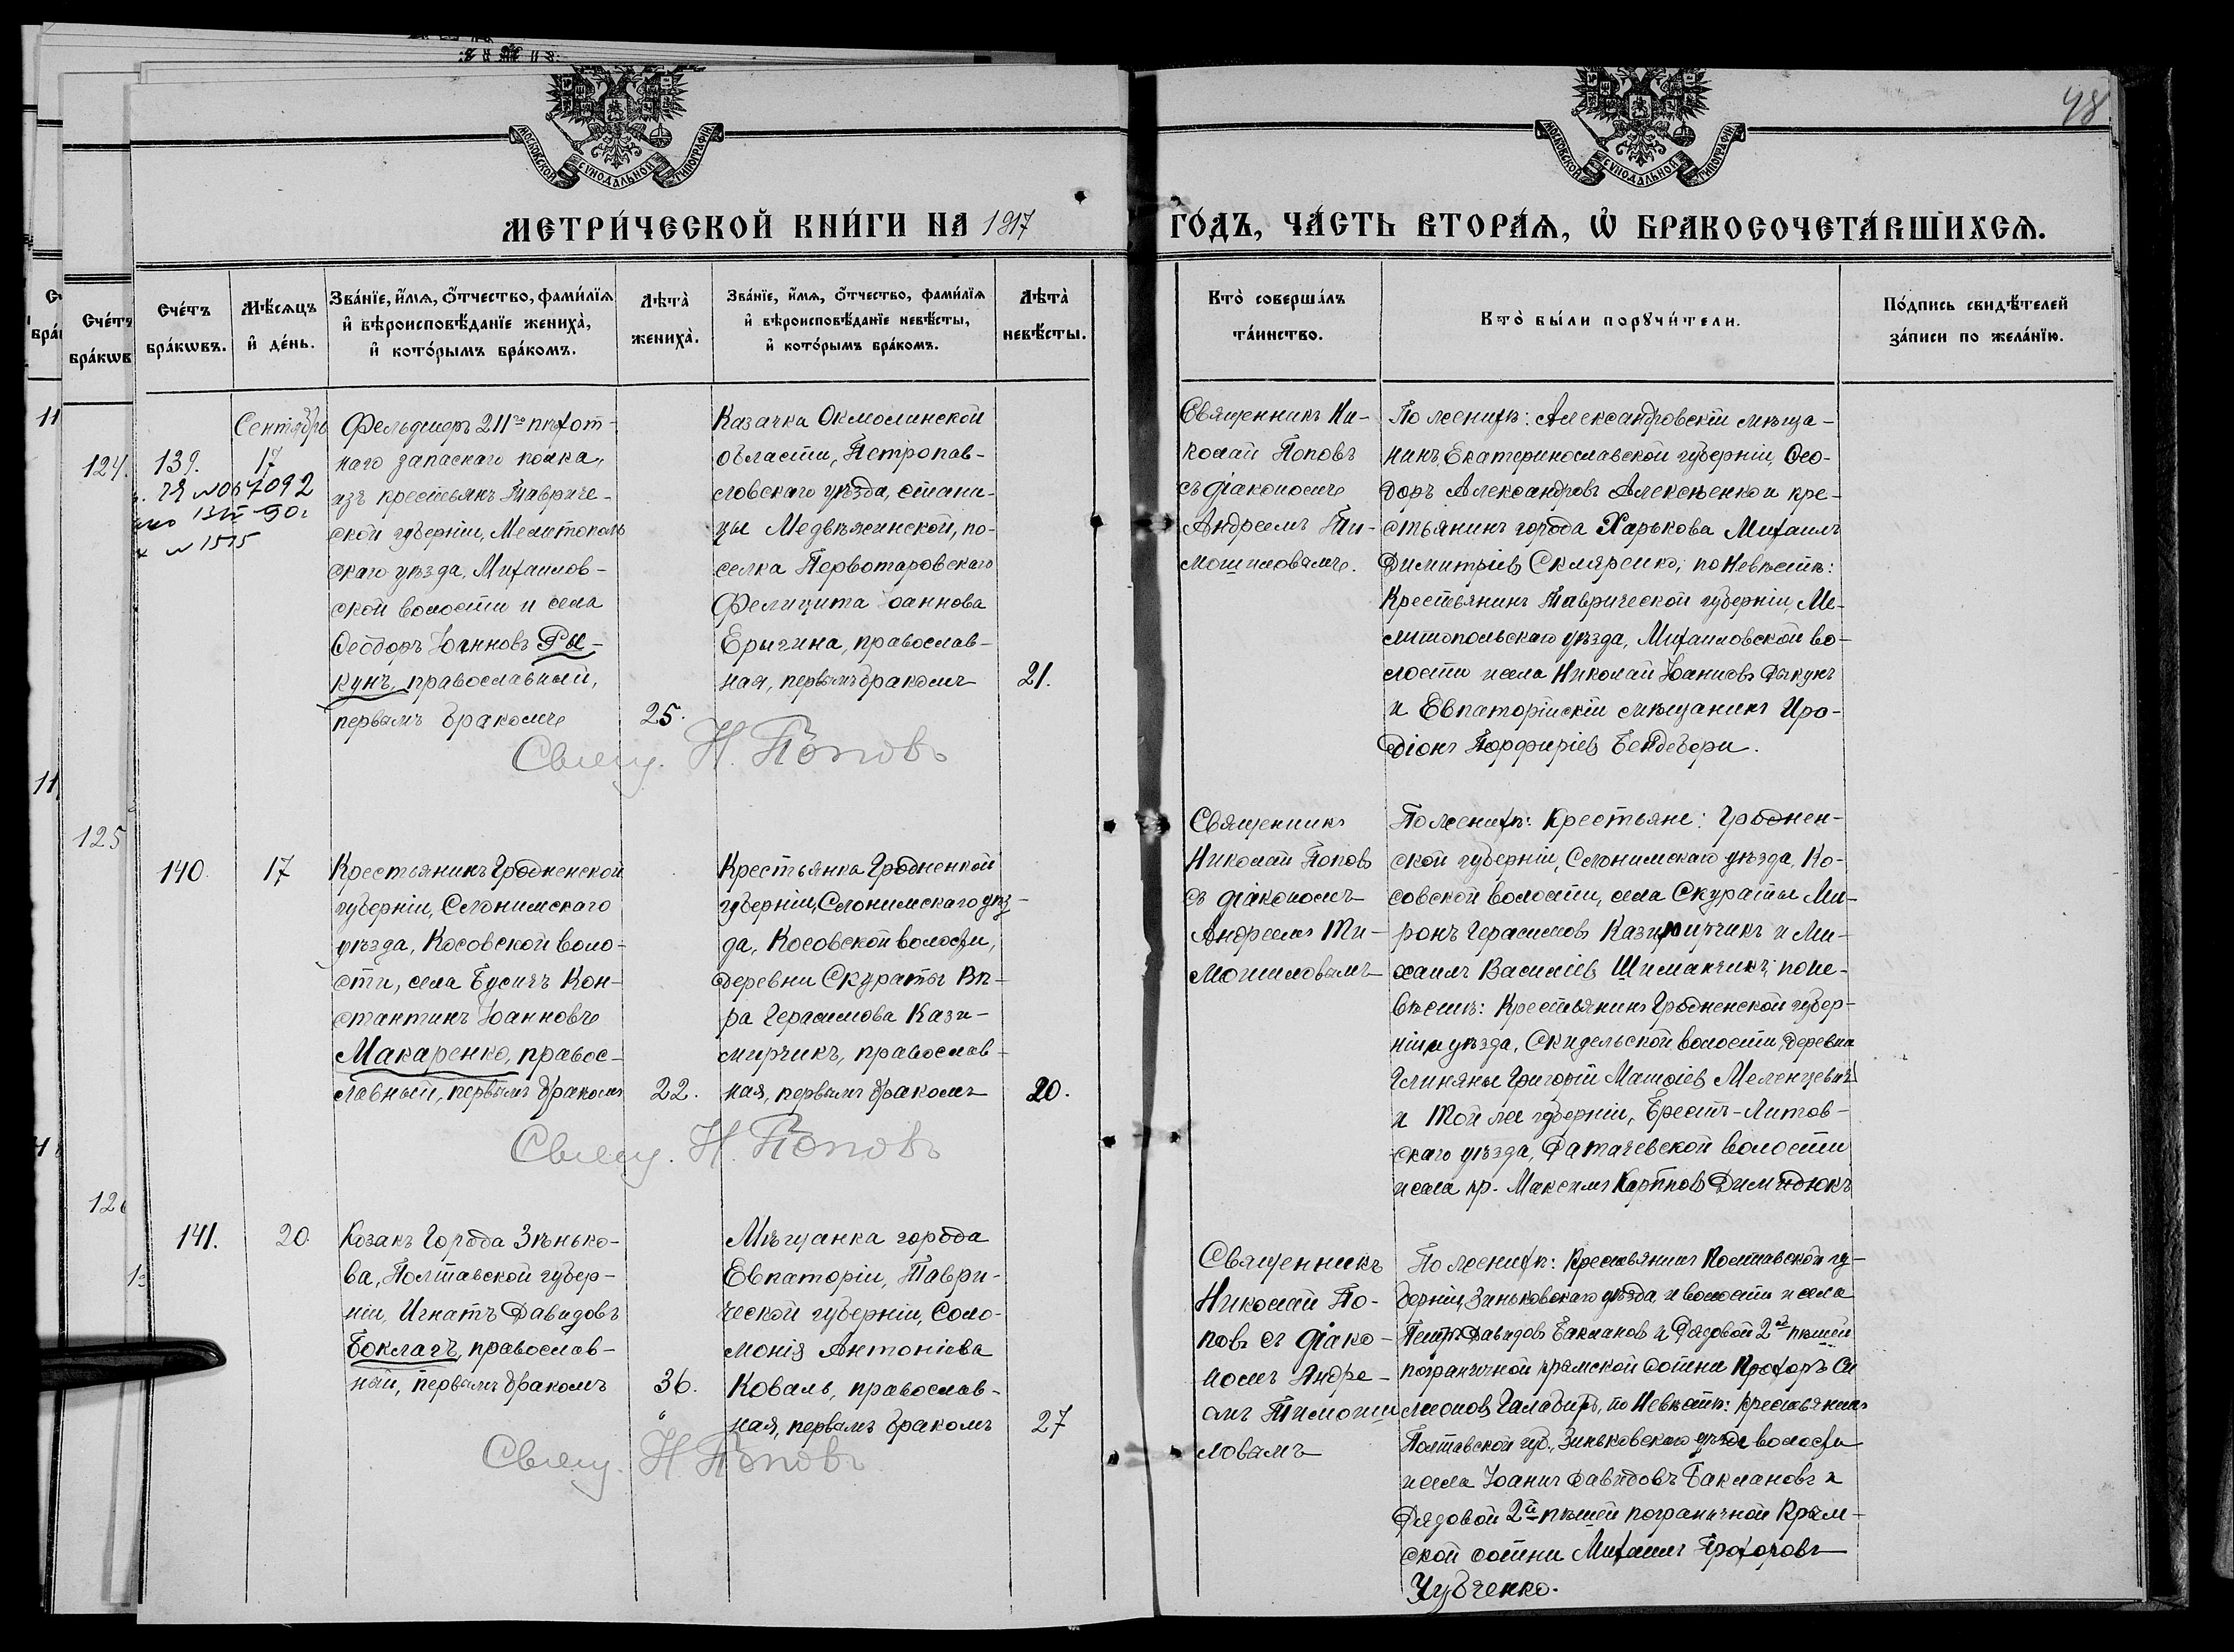 48
МОСКОВСКОЙ СѴНОДАЛЬНОЙ ТИПОГРАФІИ
МОСКОВСКОЙ СѴНОДАЛЬНОЙ ТИПОГРАФІИ
МЕТРИ́ЧЕСКОЙ КНИ́ГИ НА 1917 ГО́ДЪ, ЧА́СТЬ ВТОРА́Ѧ, Ѡ҆ БРАКОСОЧЕТА́ВШИХСѦ.
Сче́тъ
бра́кѡвъ.
Мѣ́сѧцъ
и҆ де́нь.
Зва́нїе, и҆́мѧ, ѻ҆́тчество, фами́лїѧ
и҆ вѣроисповѣ́данїе жениха̀,
и҆ кото́рымъ бра́комъ.
Лѣта̀
жениха̀.
Зва́нїе, и҆́мѧ, ѻ҆́тчество, фами́лїѧ
и҆ вѣроисповѣ́данїе невѣ́сты,
и҆ кото́рымъ бра́комъ.
Лѣта̀
невѣ́сты.
Кто̀ соверша́лъ
та́инство.
Кто̀ бы́ли порꙋчи́тели.
По́дпись свидѣ́телей
за́писи по жела́нїю.
139.
Сентябрь
17
Фельдшеръ 211го пѣхот-
наго запаснаго полка,
изъ крестьянъ Тавриче-
ской губерніи, Мелитополь
скаго уѣзда, Михаилов-
ской волости и села
Ѳеодоръ Іоанновъ Ды-
кунъ, православный,
первымъ бракомъ
25.
Казачка Окмолинской
области, Петропав-
ловскаго уѣзда, стани-
цы Медвѣжинской, по-
селка Первотаровскаго
Фелицита Іоаннова
Ерыгина, православ-
ная, первымъ бракомъ
21.
Священникъ Ни-
колай Поповъ
съ діакономъ
Андреемъ Ти-
мошиловымъ.
По женихѣ: Александровскій мѣща-
нинъ, Екатеринославской губерніи, Ѳео-
доръ Александровъ Алексѣенко и кре-
стьянинъ города Харькова Михаилъ
Димитріевъ Скляренко; по Невѣстѣ:
Крестьянинъ Таврической губерніи, Ме-
литопольскаго уѣзда, Михаиловской во-
лости и села Николай Іоанновъ Дыкунъ
и Евпаторійскій мѣщанинъ Иро-
діонъ Порфиріевъ Бендебери.
Свящ. Н. Поповъ
140.
17
Крестьянинъ Гродненской
губерніи, Слонимскаго
уѣзда, Косовской воло-
сти, села Бусичъ Кон-
стантинъ Іоанновъ
Макаренко, правос-
лавный, первымъ бракомъ
22.
Крестьянка Гродненкой
губерніи, Слонимскаго уѣз-
да, Косовской волости,
деревни Скураты Вѣ-
ра Герасимова Кази-
мирчикъ, православ-
ная, первымъ бракомъ
20.
Священникъ
Николай Поповъ
съ діакономъ
Андреемъ Ти-
мошиловымъ
По женихѣ: Крестьяне: Гроднен-
ской губерніи, Слонимскаго уѣзда, Ко-
совской волости, села Скураты Ми-
ронъ Герасимовъ Казимирчикъ и Ми-
хаилъ Василіевъ Шиманчикъ; по не-
вѣстѣ: Крестьянинъ Гродненской губер-
ніи и уѣзда, Скидельской волости, деревни
Глиняны Григорій Матѳіевъ Меленцевичъ
и той же губерніи, Брестъ-Литов-
скаго уѣзда, Дамачевской волости
и села кр. Максимъ Карповъ Димидюкъ
Свящ. Н. Поповъ
141.
20
Козакъ Города Зѣнько-
ва, Полтавской губер-
ніи, Игнатъ Давидовъ
Боклагъ, православ-
ный, первымъ бракомъ
36.
Мѣщанка города
Евпаторіи, Таври-
ческой губерніи, Соло-
монія Антоніева
Коваль, православ-
ная, первымъ бракомъ
27
Священникъ
Николай По-
повъ съ діако-
номъ Андре-
емъ Тимоши
ловымъ
По женихѣ: Крестьянинъ Полтавской гу-
берніи, Зиньковскаго уѣзда и волости и села
Петръ Давидовъ Баклановъ и Рядовой 2й пѣшей
пограничной крымской сотни Прохоръ Си
меоновъ Галабиръ, по Невѣстѣ: крестьянинъ
Полтавской губ., Зиньковскаго уѣзда волости
и села Іоаннъ Давидовъ Баклановъ и
Рядовой 2й пѣшей пограничной Крым-
ской сотни Михаилъ Прохоровъ
Чубченко.
Свящ. Н. Поповъ
124.
125